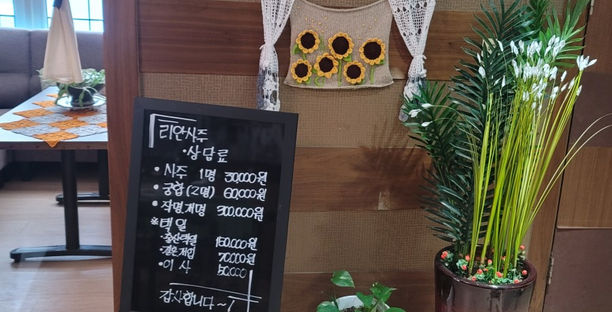 리안사주
• 상담료
• 사주 1명 30,000원
• 궁합(2명) 60,000원
• 작명,개명 300,000원
※ 택일
• 출산택일 150,000원
• 결혼택일 70,000원
• 이사 50,000
감사합니다~